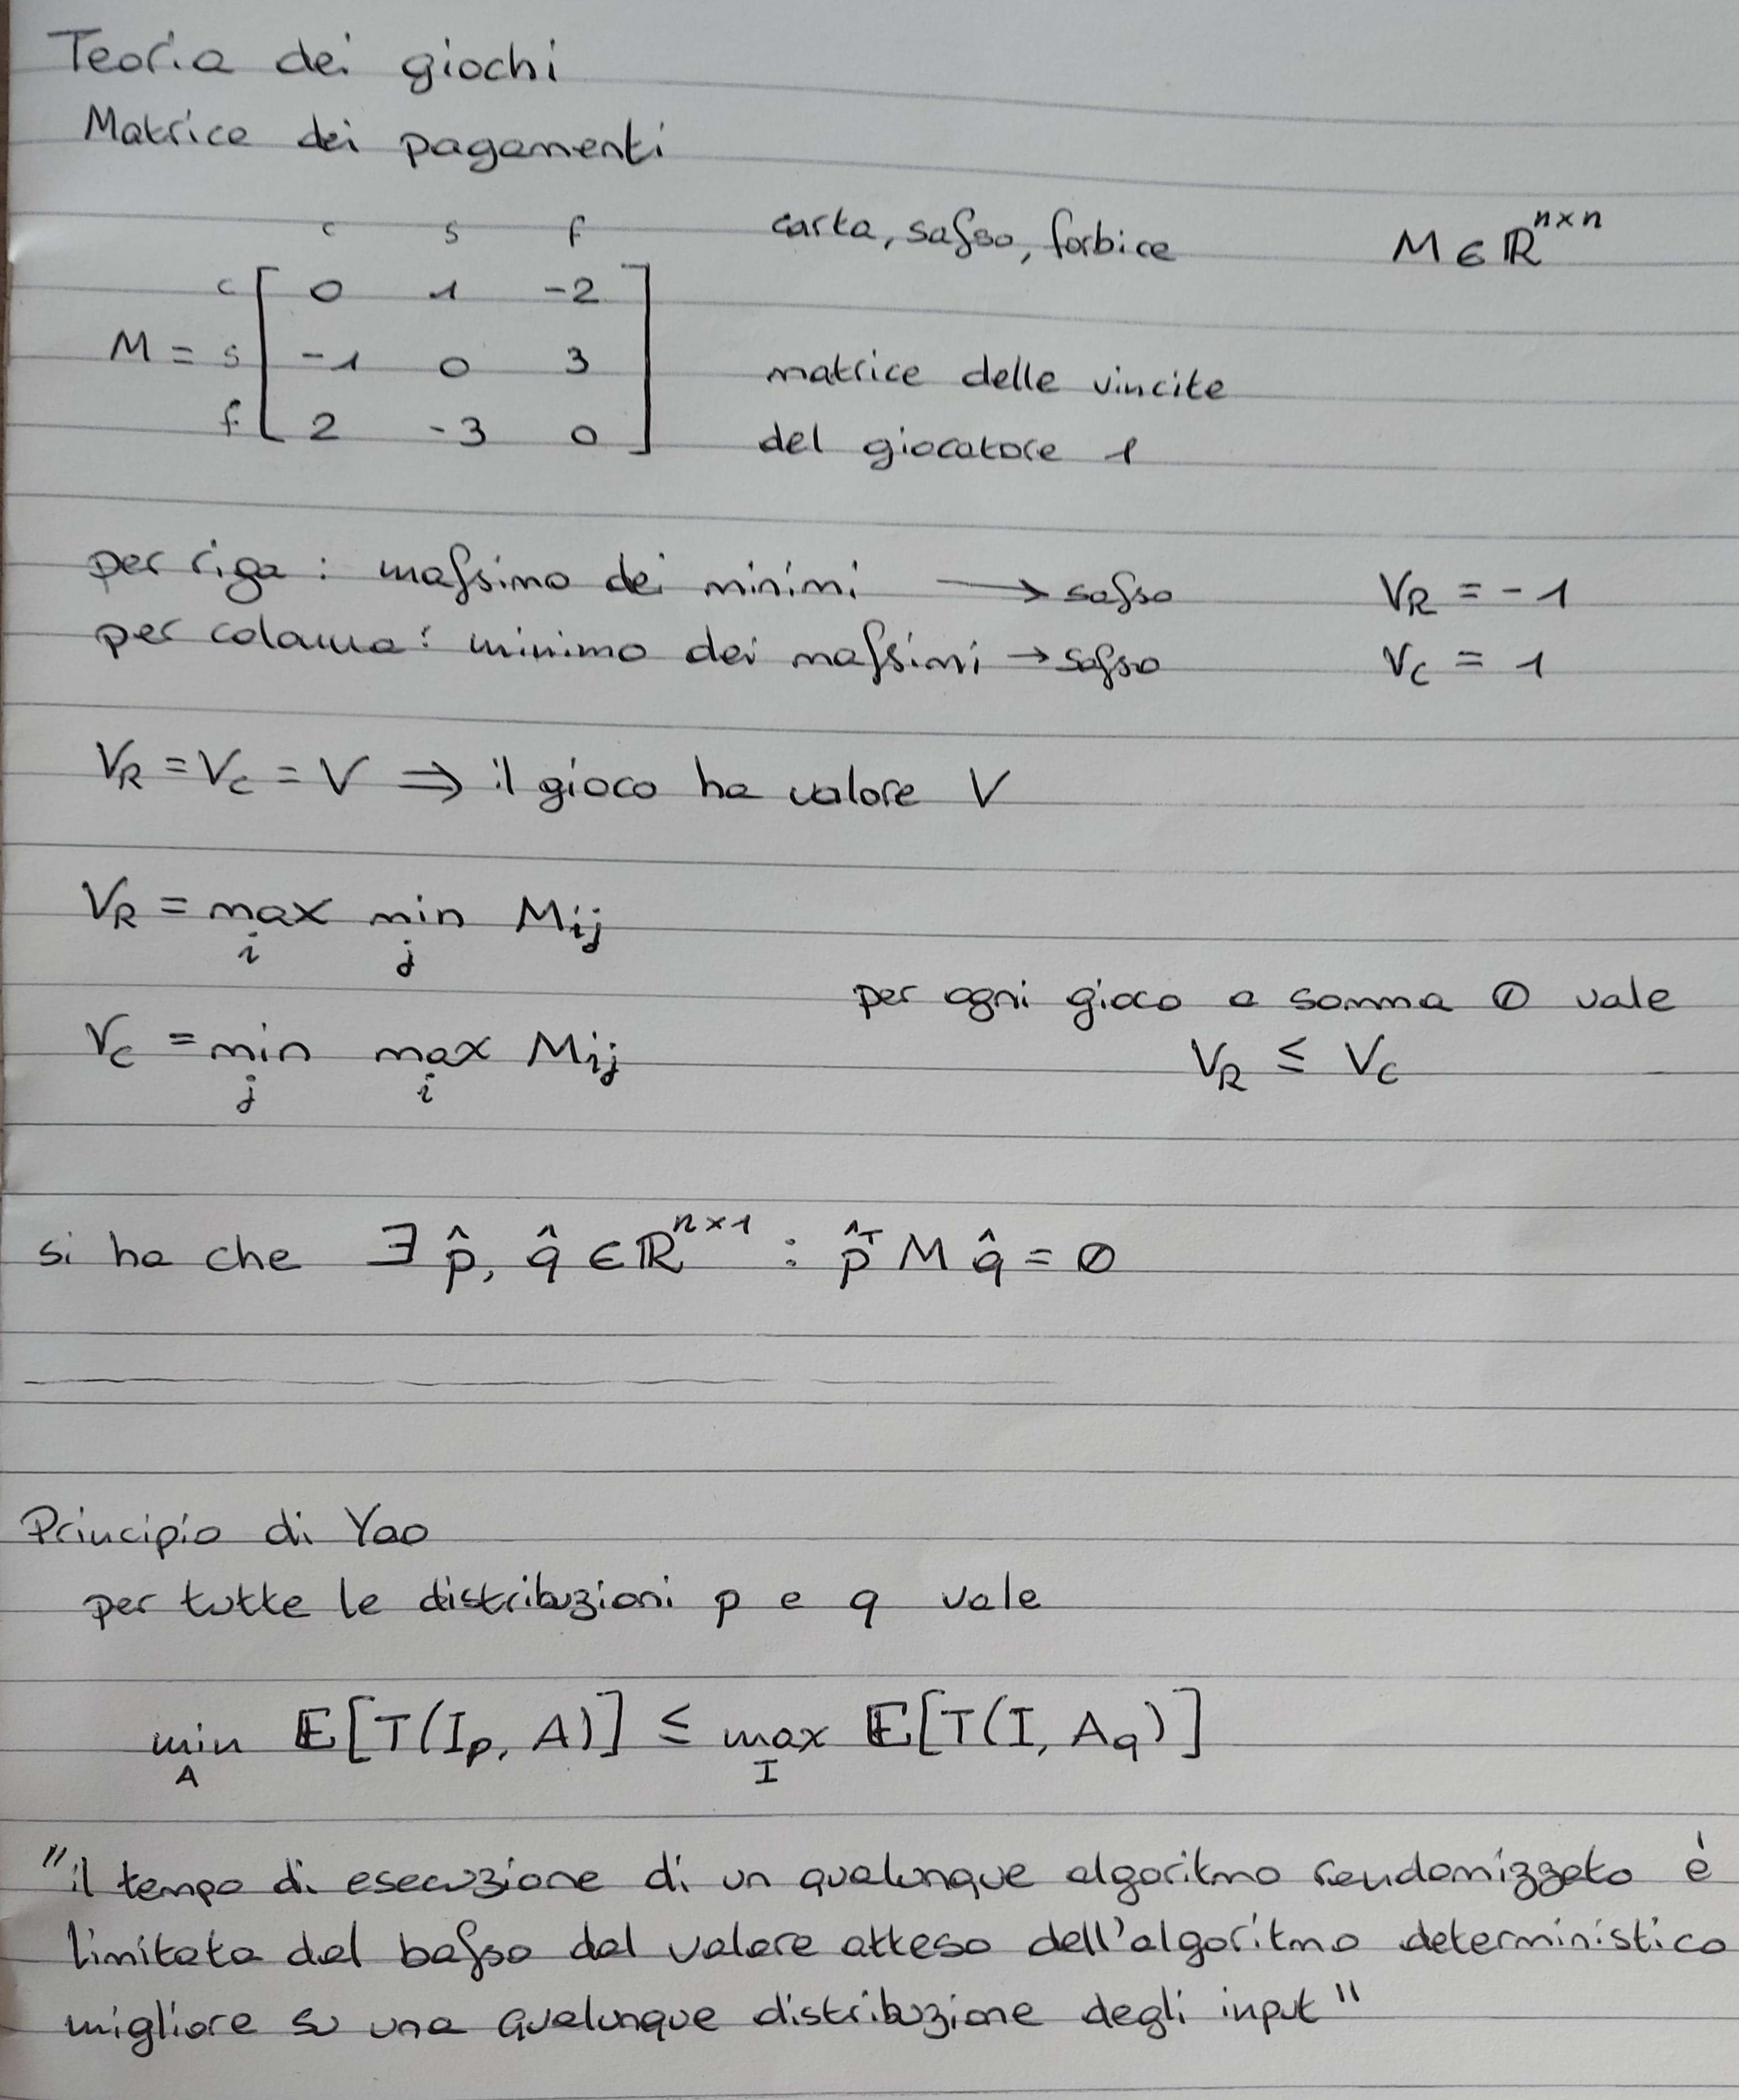 Teoria dei giochi
Matrice dei pagamenti
c s f carta, sasso, forbice M ∈ ℝ^{n×n}
c [ 0 1 -2 ]
M = s [ -1 0 3 ] matrice delle vincite
f [ 2 -3 0 ] del giocatore 1
per riga: massimo dei minimi → sasso V_R = -1
per colonna: minimo dei massimi → sasso V_C = 1
V_R = V_C = V ⇒ il gioco ha valore V
V_R = max_i min_j M_ij
per ogni gioco a somma 0 vale
V_C = min_j max_i M_ij V_R ≤ V_C
si ha che ∃ p̂, q̂ ∈ ℝ^{n×1} : p̂^T M q̂ = 0
Principio di Yao
per tutte le distribuzioni p e q vale
min_A E[T(I_p, A)] ≤ max_I E[T(I, A_q)]
"il tempo di esecuzione di un qualunque algoritmo randomizzato è
limitato dal basso dal valore atteso dell'algoritmo deterministico
migliore su una qualunque distribuzione degli input"